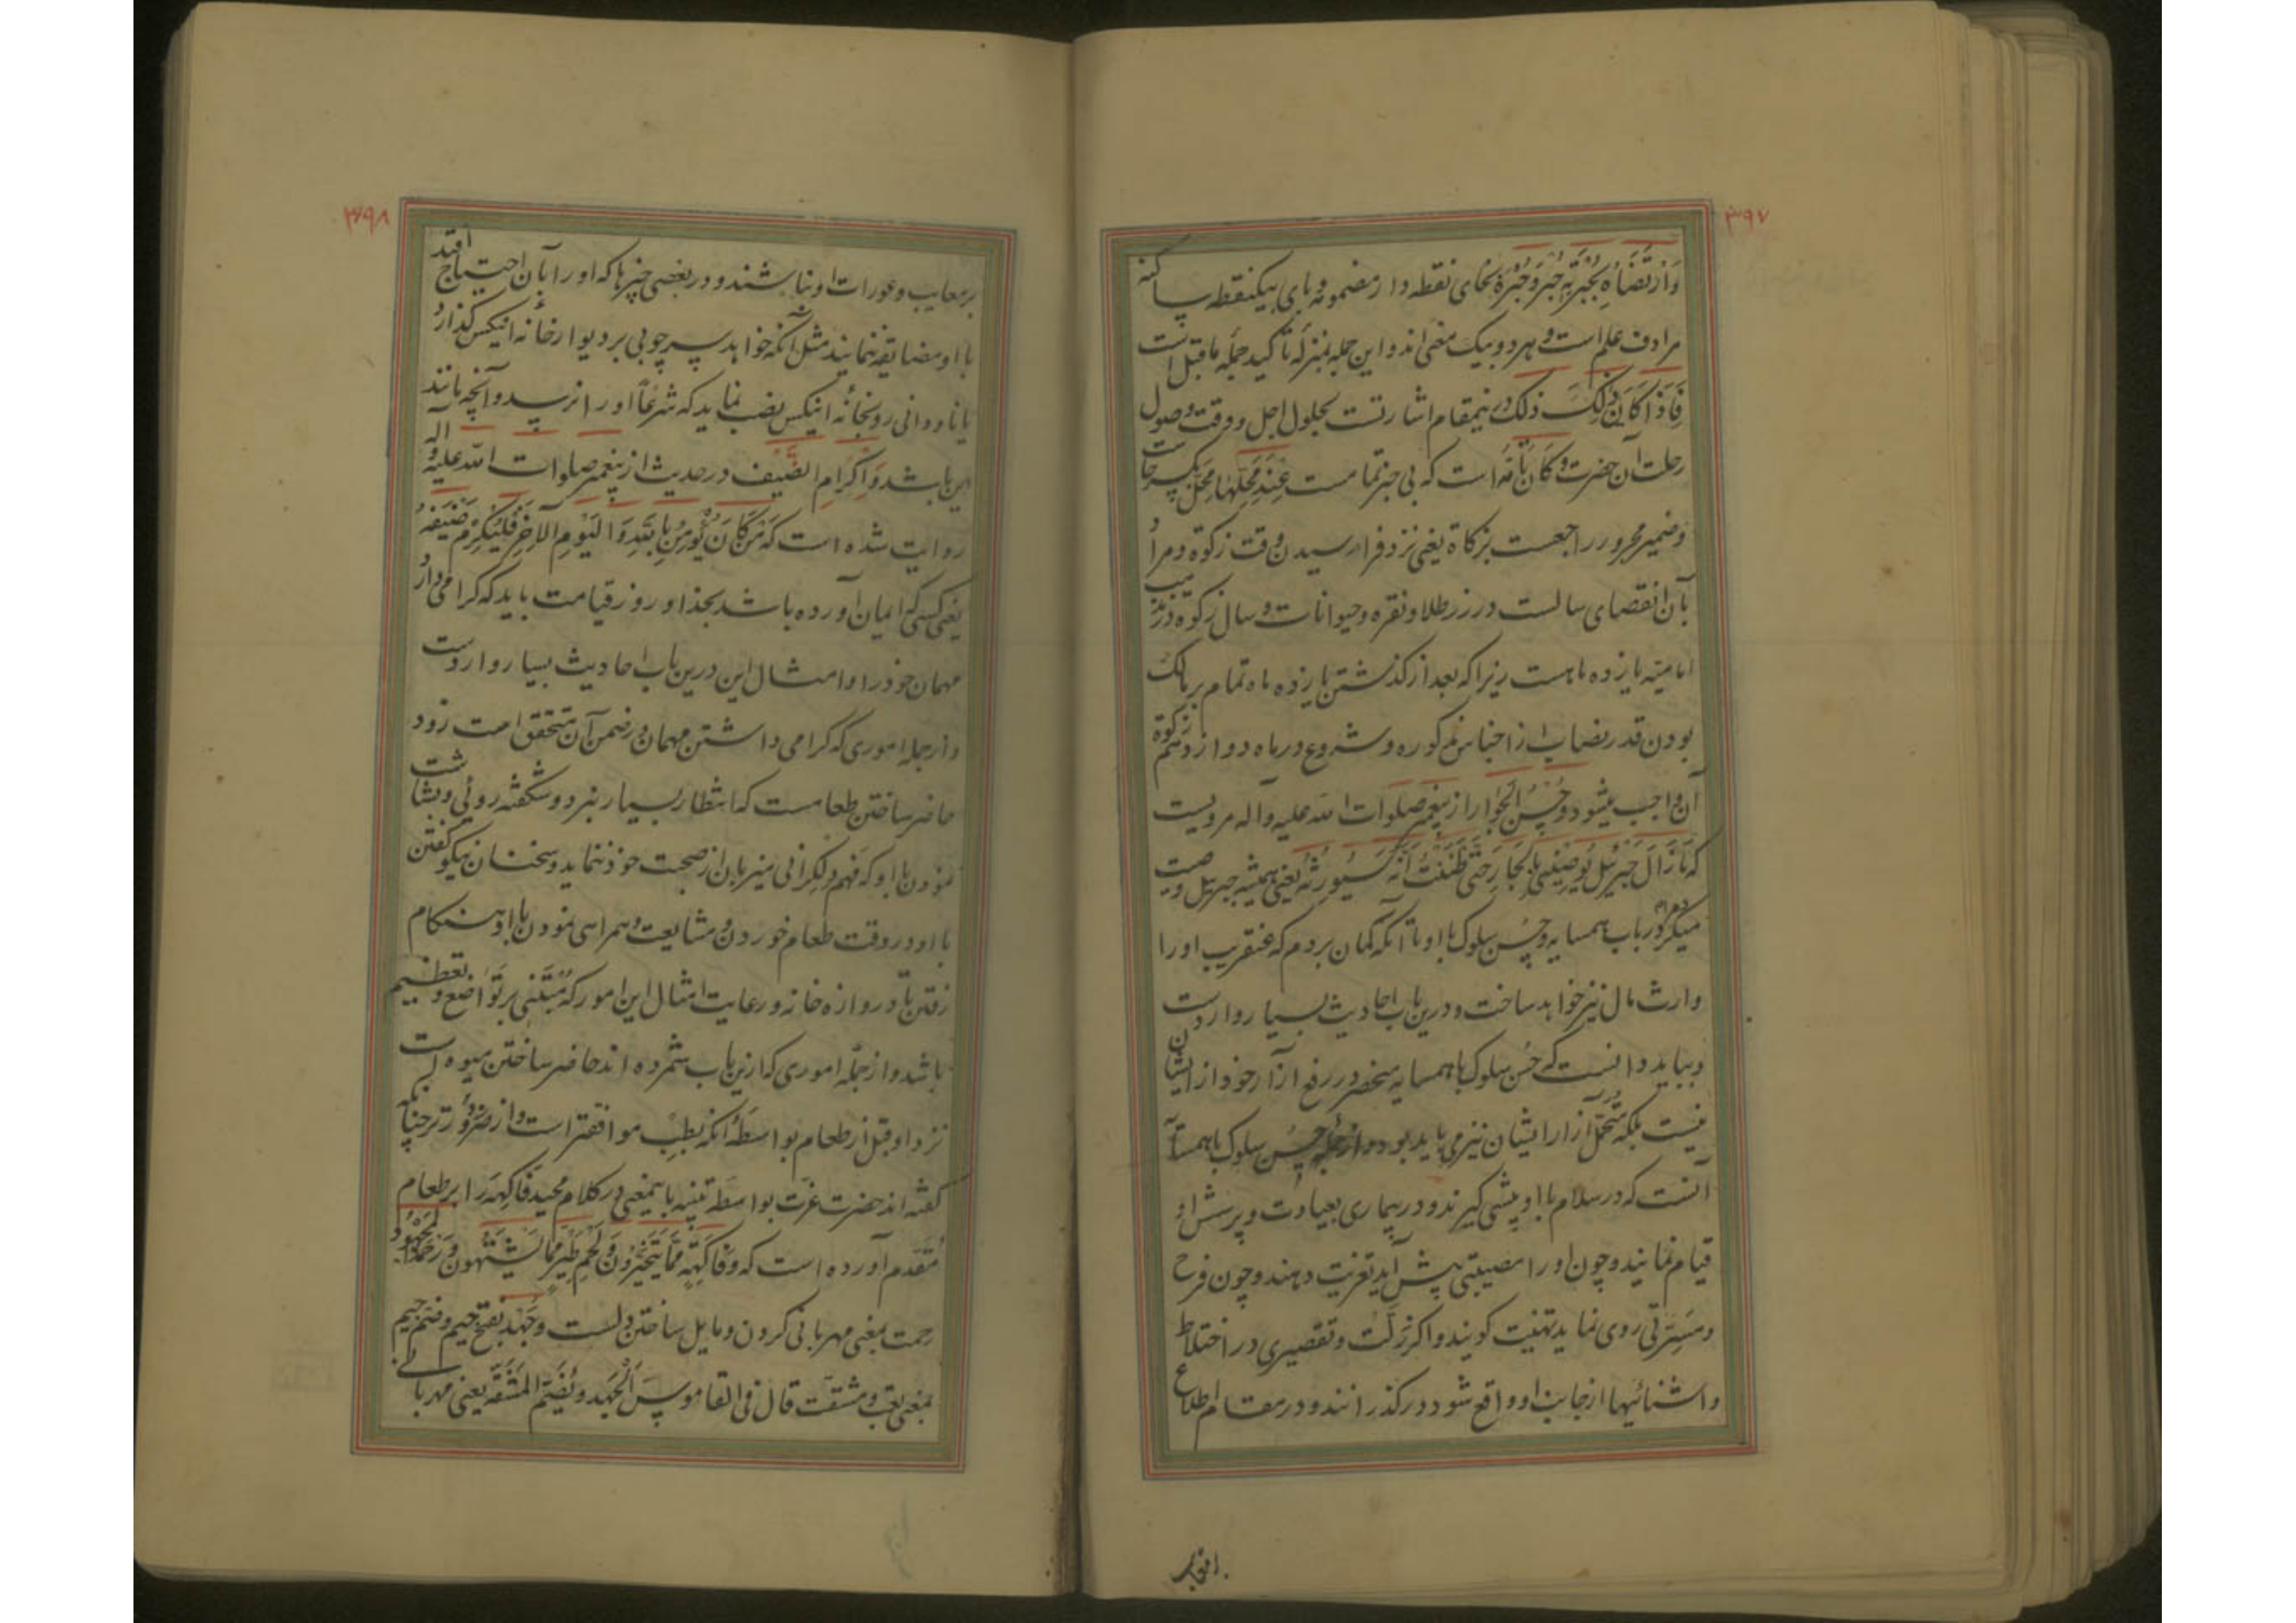 ۳۹۷
وَارْتَضَاهُ بِخُبْرَتِهِ خُبر و خُبْرَة بخای نقطه دار مضمومه و بای بیکنقطه ساکنه
مرادف علم است و هر دو بیک معنی اند و این جمله بمنزله تأکید جمله ماقبل است
فَاِذَا كَانَ ذٰلِكَ ذلک درینمقام اشارتست بحلول اجل و وقت وصول
رحلت آن حضرت و کان تامّه است که بی خبر تمامست عِنْدَ مَحِلِّهَا مَحِلّ بکسر حاست
و ضمیر مجرور راجعست بزکاة یعنی نزد فرا رسیدن وقت زکوة و مراد
بآن انقضای سالست در زر طلا و نقره و حیوانات و سال زکوه در مذهب
امامیّه یازده ماهست زیرا که بعد از کذشتن یازده ماه تمام بر مالک
بودن قدر نصاب از اجناس مذکوره و شروع در ماه دوازدهم زکوة
آن واجب میشود وَحُسْنِ الْجِوَارِ از پیغمبر صلوات الله علیه و آله مرویست
که مَا زَالَ جَبْرَئِيلُ يُوصِينِي بِالْجَارِ حَتّٰى ظَنَنْتُ اَنَّهُ سَيُوَرِّثُهُ یعنی همیشه جبرئیل وصیت
میکرد مرا در باب همسایه و حُسن سلوک با او تا آنکه کمان بردم که عنقریب او را
وارث مال نیز خواهد ساخت و درین باب احادیث بسیار واردست
و بباید دانست که حُسن سلوک با همسایه منحصر در رفع آزار خود از ایشان
نیست بلکه متحمّل آزار ایشان نیز می باید بود و از جمله حسن سلوک با همسایه
آنست که در سلام با او پیشی کیرند و در بیماری بعیادت و پرسش او
قیام نمایند و چون او را مصیبتی پیش آید تعزیت دهند و چون فرح
و مسرّتی روی نماید تهنیت کویند و اکر زلّت و تقصیری در اختلاط
و اشنائیها از جانب او واقع شود در کذرانند و در مقام اطلاع
۳۹۸
بر معایب و عورات او نباشند و در بعضی چیزها که او را بآن احتیاج افتد
با او مضایقه ننمایند مثل آنکه خواهد سر چوبی بر دیوار خانه اینکس کذارد
یا ناودانی رو بخانه اینکس نصب نماید که شرعًا او را نرسد و آنچه مانند
این باشد وَاِكْرَامِ الضَّيْفِ در حدیث از پیغمبر صلوات الله علیه و آله
روایت شده است که مَنْ كَانَ يُؤْمِنُ بِاللهِ وَالْيَوْمِ الْآخِرِ فَلْيُكْرِمْ ضَيْفَهُ
یعنی کسی که ایمان آورده باشد بخدا و روز قیامت باید که کرامی دارد
مهمان خود را و امثال این درین باب احادیث بسیار واردست
و از جمله اموری که کرامی داشتن مهمان در ضمن آن متحقق است زود
حاضر ساختن طعامست که انتظار بسیار نبرد و شکفته روئی و بشاشت
نمودن با او که فهم دلکرانی میزبان از صحبت خود ننماید و سخنان نیکو کفتن
با او در وقت طعام خوردن و مشایعت و همراهی نمودن با او هنکام
رفتن تا دروازه خانه و رعایت امثال این امور که مُبتنی بر تواضع و تعظیم
باشد و از جمله اموری که ازین باب شمرده اند حاضر ساختن میوه است
نزد او قبل از طعام بواسطه آنکه بطبّ موافقتر است و از ضرر دورتر چنانکه
کفته اند حضرت عزّت بواسطه تنبیه باینمعنی در کلام مجید فاکهه را بر طعام
مُقدّم آورده است که وَفَاكِهَةٍ مِمَّا يَتَخَيَّرُونَ وَلَحْمِ طَيْرٍ مِمَّا يَشْتَهُونَ وَرَحْمَةِ الْمَجْهُودِ
رحمت بمعنی مهربانی کردن و مایل ساختن دلست و جَهد بفتح جیم و ضمّ جیم
بمعنی تعب و مشقّت قال فی القاموس الْجَهْد وَيُضَمّ الْمَشَقّة یعنی مهربانی